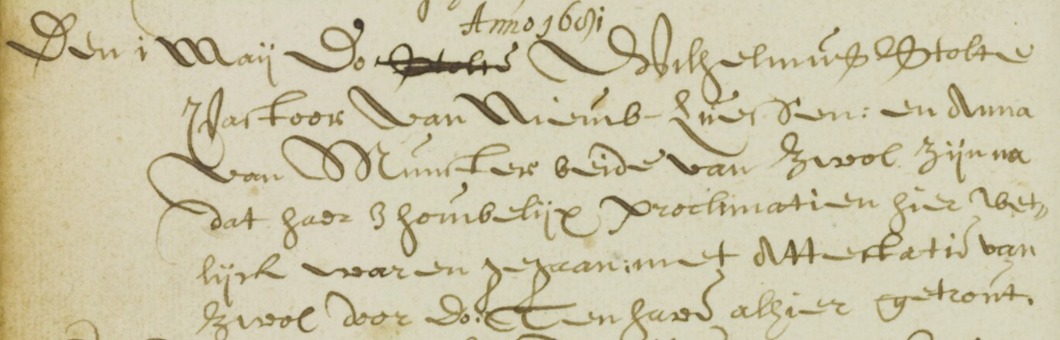 Anno 1681
Den 1 Maij Do Stolte Wilhelmus Stolte
Pastoor van Nieub- en Anna
van Munster beide van Zwol zijn na
dat haer 3 houbelijx proclimatien hier wet,,
lijck waren gegaan: met Attestatie van
Zwol door do: Ten have alhier getrout.